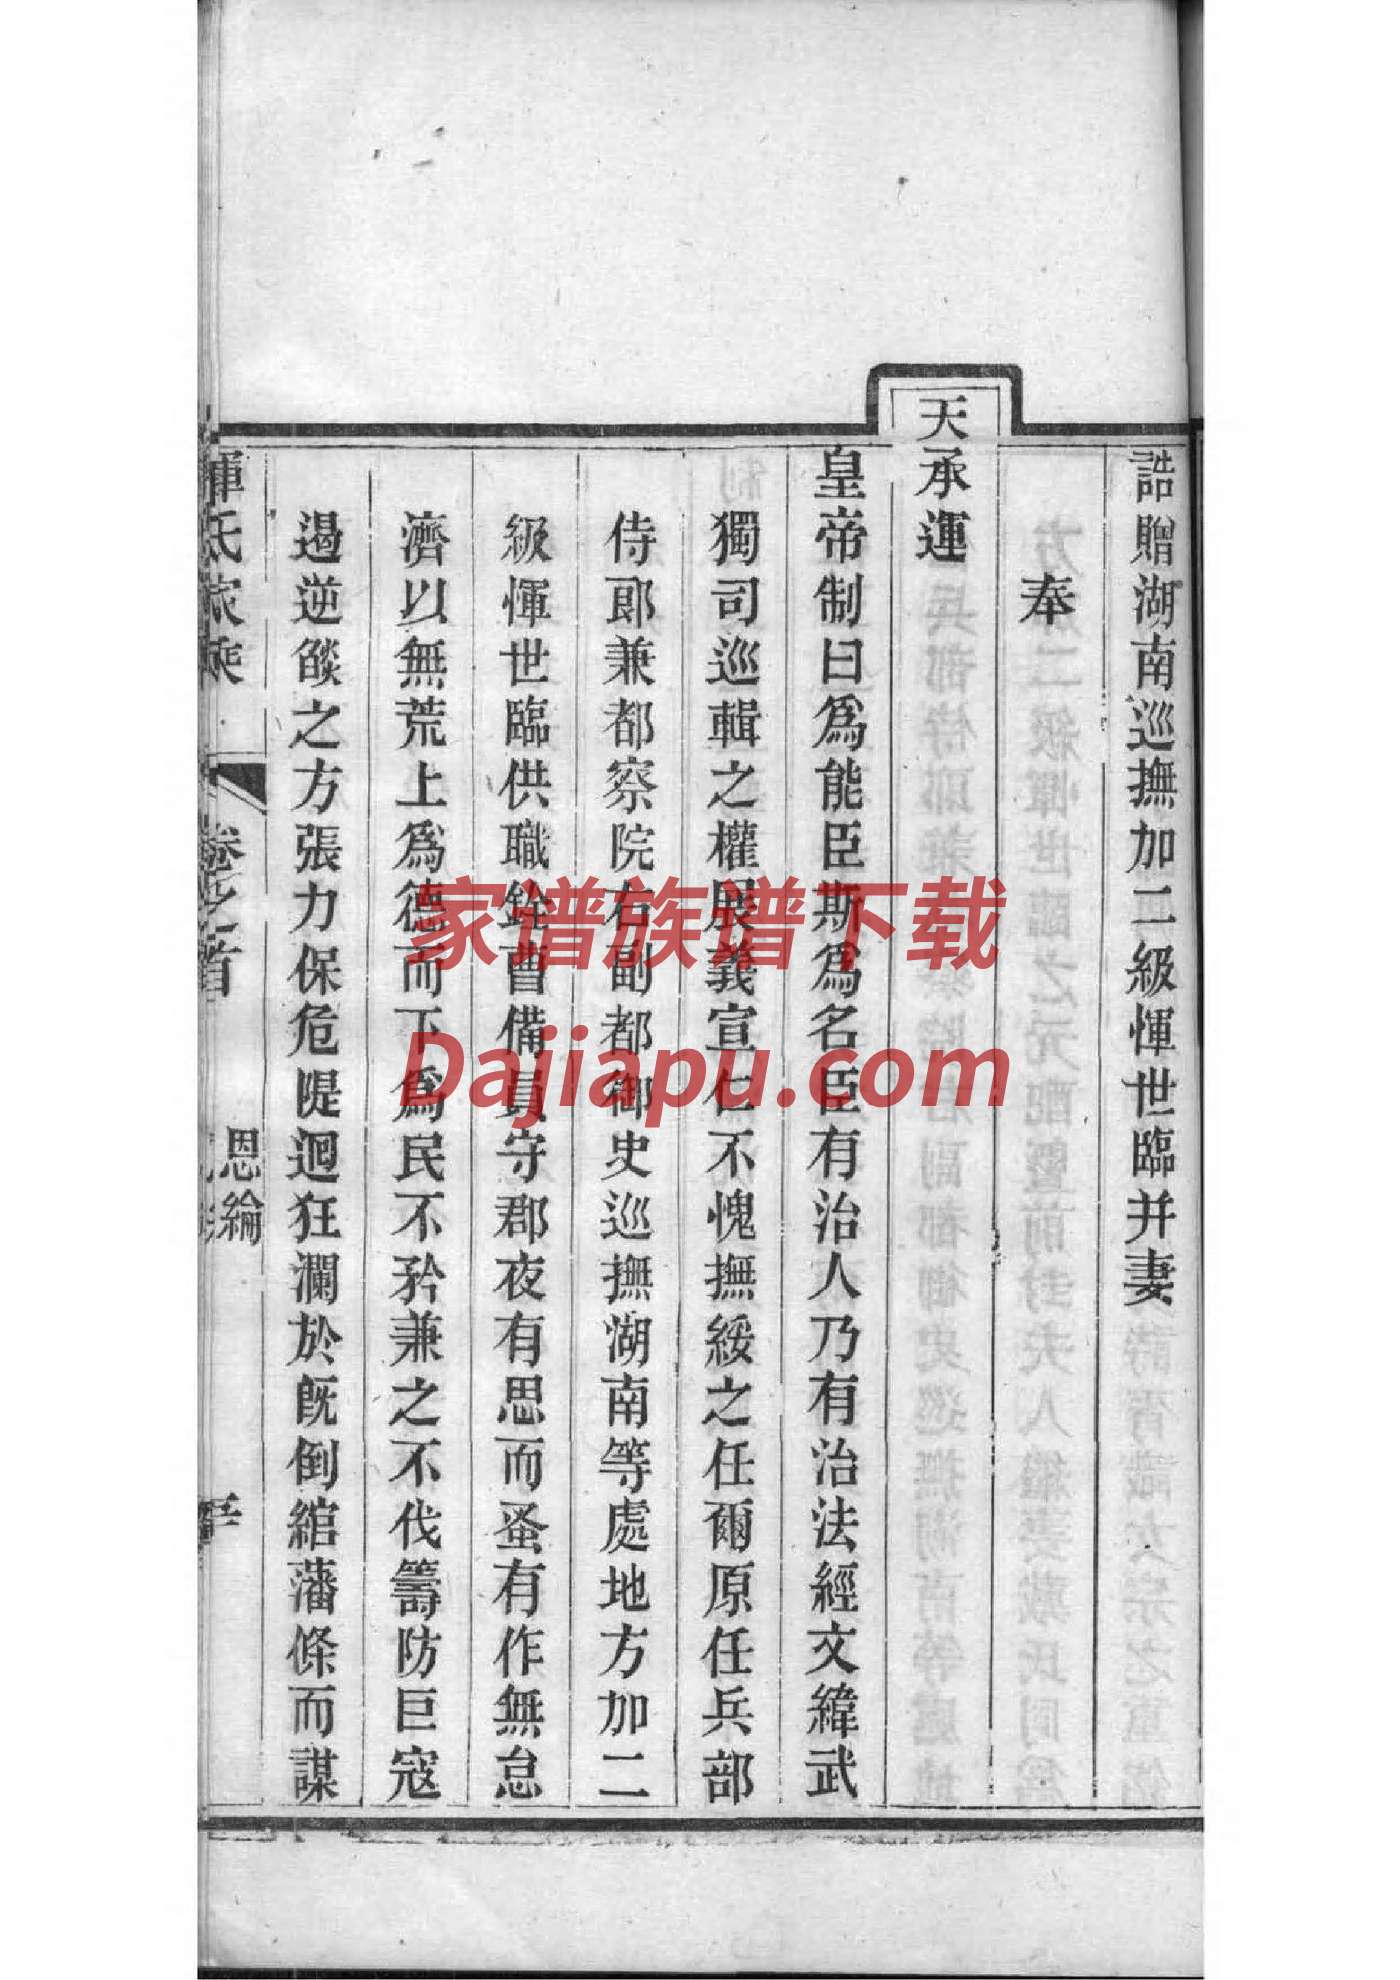 誥贈湖南巡撫加二級惲世臨并妻
奉
天承運
皇帝制曰爲能臣斯爲名臣有治人乃有治法經文緯武
獨司巡輯之權展義宣仁不愧撫綏之任爾原任兵部
侍郎兼都察院右副都御史巡撫湖南等處地方加二
級惲世臨供職銓曹備員守郡夜有思而蚤有作無怠
濟以無荒上爲德而下爲民不矜兼之不伐籌防巨寇
遏逆燄之方張力保危隄迴狂瀾於旣倒綰藩條而謀
惲氏家乘
卷之首
恩綸
家谱族谱下载
Dajiapu.com